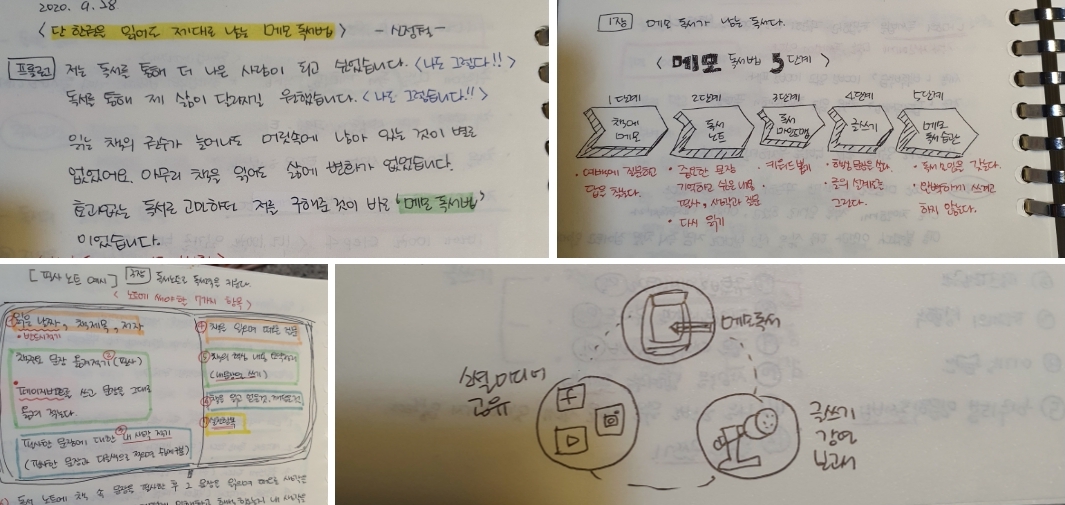 2020. 9. 28
< 단 한권을 읽어도 제대로 남는 메모 독서법 > - 신정철 -
프롤로그 저는 독서를 통해 더 나은 사람이 되고 싶었습니다. <나도 그렇다!!>
독서를 통해 제 삶이 달라지길 원했습니다. <나도 그렇습니다!!>
읽는 책의 권수가 늘어나도 머릿속에 남아 있는 것이 별로
없었어요. 아무리 책을 읽어도 삶에 변화가 없었습니다.
효과없는 독서로 고민하던 저를 구해준 것이 바로 '메모 독서법'
이었습니다.
1장 메모 독서가 남는 독서다.
< 메모 독서법 5단계 >
1단계 2단계 3단계 4단계 5단계
책에 메모
독서 노트
독서 마인드맵
글쓰기
메모 독서습관
• 여백에 질문하고
답을 찾는다.
• 중요한 문장
기억하고 싶은 내용
필사, 생각과 질문
• 다시 읽기
• 키워드
• 글의 설계도를
그린다.
• 독서모임을 갖는다.
• 완벽하게 쓰려고
하지 않는다.
[ 필사 노트 예시 ] 2장 독서노트로 독서력을 키운다.
< 노트에 써야 할 7가지 항목 >
① 읽은 날짜, 책제목, 저자
• 반드시적기
책속의 문장 옮겨적기 (필사)
• 페이지번호를 쓰고 문장을 그대로
옮겨 적는다.
필사한 문장에 대한 내 생각 적기
(필사한 문장과 다른색으로 적으면 쉬워구분)
④ 책을 읽으며 떠오른 질문
⑤ 책의 핵심 내용 간추리기
(내용요약 쓰기)
독서 노트에 책 속 문장을 필사한 후 그 문장을 읽으며 떠오른 생각을
메모독서
소셜미디어
공유
글쓰기
강연
보고서